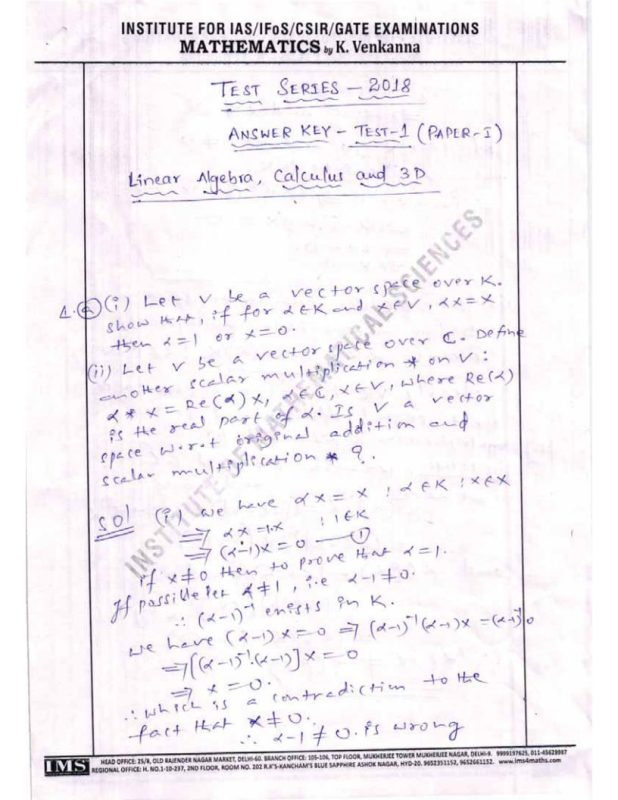 INSTITUTE FOR IAS/IFoS/CSIR/GATE EXAMINATIONS
MATHEMATICS by K. Venkanna
TEST SERIES - 2018
ANSWER KEY - TEST-1 (PAPER-I)
Linear Algebra, Calculus and 3D
1. (a) (i) Let V be a vector space over K.
show that, if for α∈K and x∈V, αx=x
then α=1 or x=0.
(ii) Let V be a vector space over C. Define
another scalar multiplication * on V:
α * x = Re(α)x, α∈C, x∈V, where Re(α)
is the real part of α. Is V a vector
space w.r.t original addition and
scalar multiplication * ?
Sol (i) we have αx = x ; α∈K ; x∈X
⇒ αx = 1.x ; 1∈K
⇒ (α-1)x = 0 — (1)
if x≠0 then to prove that α=1.
If possible let α≠1, i.e α-1≠0.
∴ (α-1)⁻¹ exists in K.
we have (α-1)x=0 ⇒ (α-1)⁻¹(α-1)x = (α-1)⁻¹0
⇒ [(α-1)⁻¹.(α-1)]x = 0
⇒ x = 0.
∴ which is a contradiction to the
fact that x≠0.
∴ α-1≠0 is wrong
INSTITUTE OF MATHEMATICAL SCIENCES
IMS
HEAD OFFICE: 25/8, OLD RAJENDER NAGAR MARKET, DELHI-60. BRANCH OFFICE: 105-106, TOP FLOOR, MUKHERJEE TOWER MUKHERJEE NAGAR, DELHI-9. 9999197625, 011-45629987
REGIONAL OFFICE: H. NO.1-10-237, 2ND FLOOR, ROOM NO. 202 R.K'S-KANCHAM'S BLUE SAPPHIRE ASHOK NAGAR, HYD-20. 9652351152, 9652661152. www.ims4maths.com